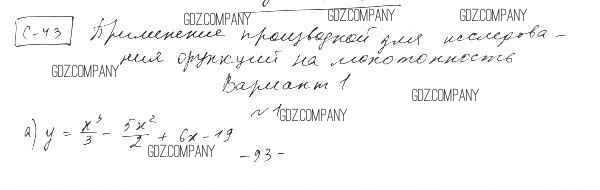 GDZ.COMPANY GDZ.COMPANY GDZ.COMPANY
С-43 Применение производной для исследова-
ния функций на монотонность
GDZ.COMPANY
Вариант 1
GDZ.COMPANY
№1 GDZ.COMPANY
а) y = x³/3 - 5x²/2 + 6x - 19
GDZ.COMPANY
- 93 -